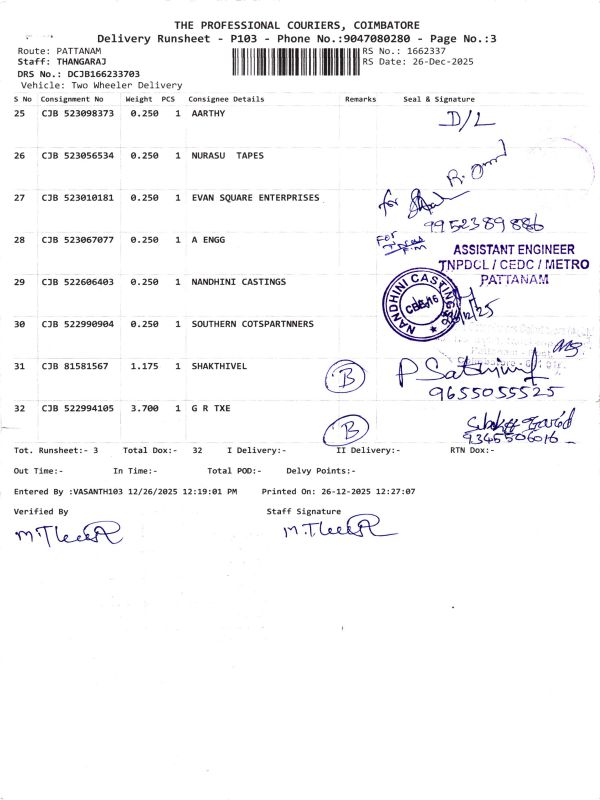 THE PROFESSIONAL COURIERS, COIMBATORE
Delivery Runsheet - P103 - Phone No.:9047080280 - Page No.:3
Route: PATTANAM
RS No.: 1662337
Staff: THANGARAJ
RS Date: 26-Dec-2025
DRS No.: DCJB166233703
Vehicle: Two Wheeler Delivery
S No Consignment No Weight PCS Consignee Details Remarks Seal & Signature
25 CJB 523098373 0.250 1 AARTHY D/L
26 CJB 523056534 0.250 1 NURASU TAPES
27 CJB 523010181 0.250 1 EVAN SQUARE ENTERPRISES for
9952389886
28 CJB 523067077 0.250 1 A ENGG FOR
ASSISTANT ENGINEER
TNPDCL / CEDC / METRO
PATTANAM
29 CJB 522606403 0.250 1 NANDHINI CASTINGS
NANDHINI CASTING
30 CJB 522990904 0.250 1 SOUTHERN COTSPARTNNERS
31 CJB 81581567 1.175 1 SHAKTHIVEL B
9655055525
32 CJB 522994105 3.700 1 G R TXE B
9345506016
Tot. Runsheet:- 3 Total Dox:- 32 I Delivery:- II Delivery:- RTN Dox:-
Out Time:- In Time:- Total POD:- Delvy Points:-
Entered By :VASANTH103 12/26/2025 12:19:01 PM Printed On: 26-12-2025 12:27:07
Verified By Staff Signature